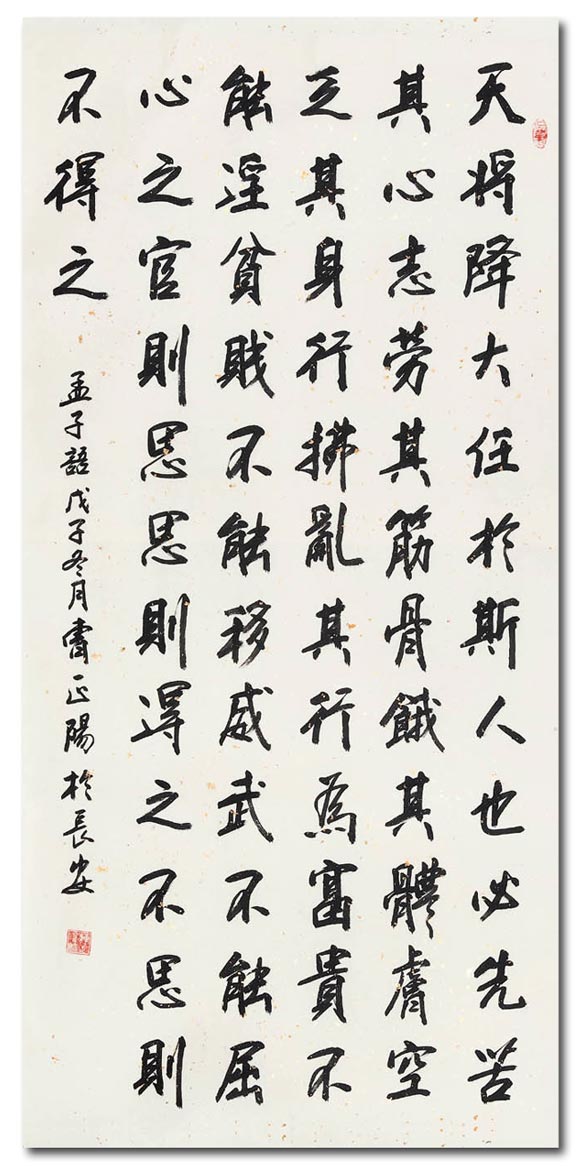 天將降大任於斯人也必先苦
其心志劳其筋骨餓其體膚空
乏其身行拂亂其行為富貴不
能淫貧賤不能移威武不能屈
心之官則思思則得之不思則
不得之
孟子語戊子冬月雷正陽於長安